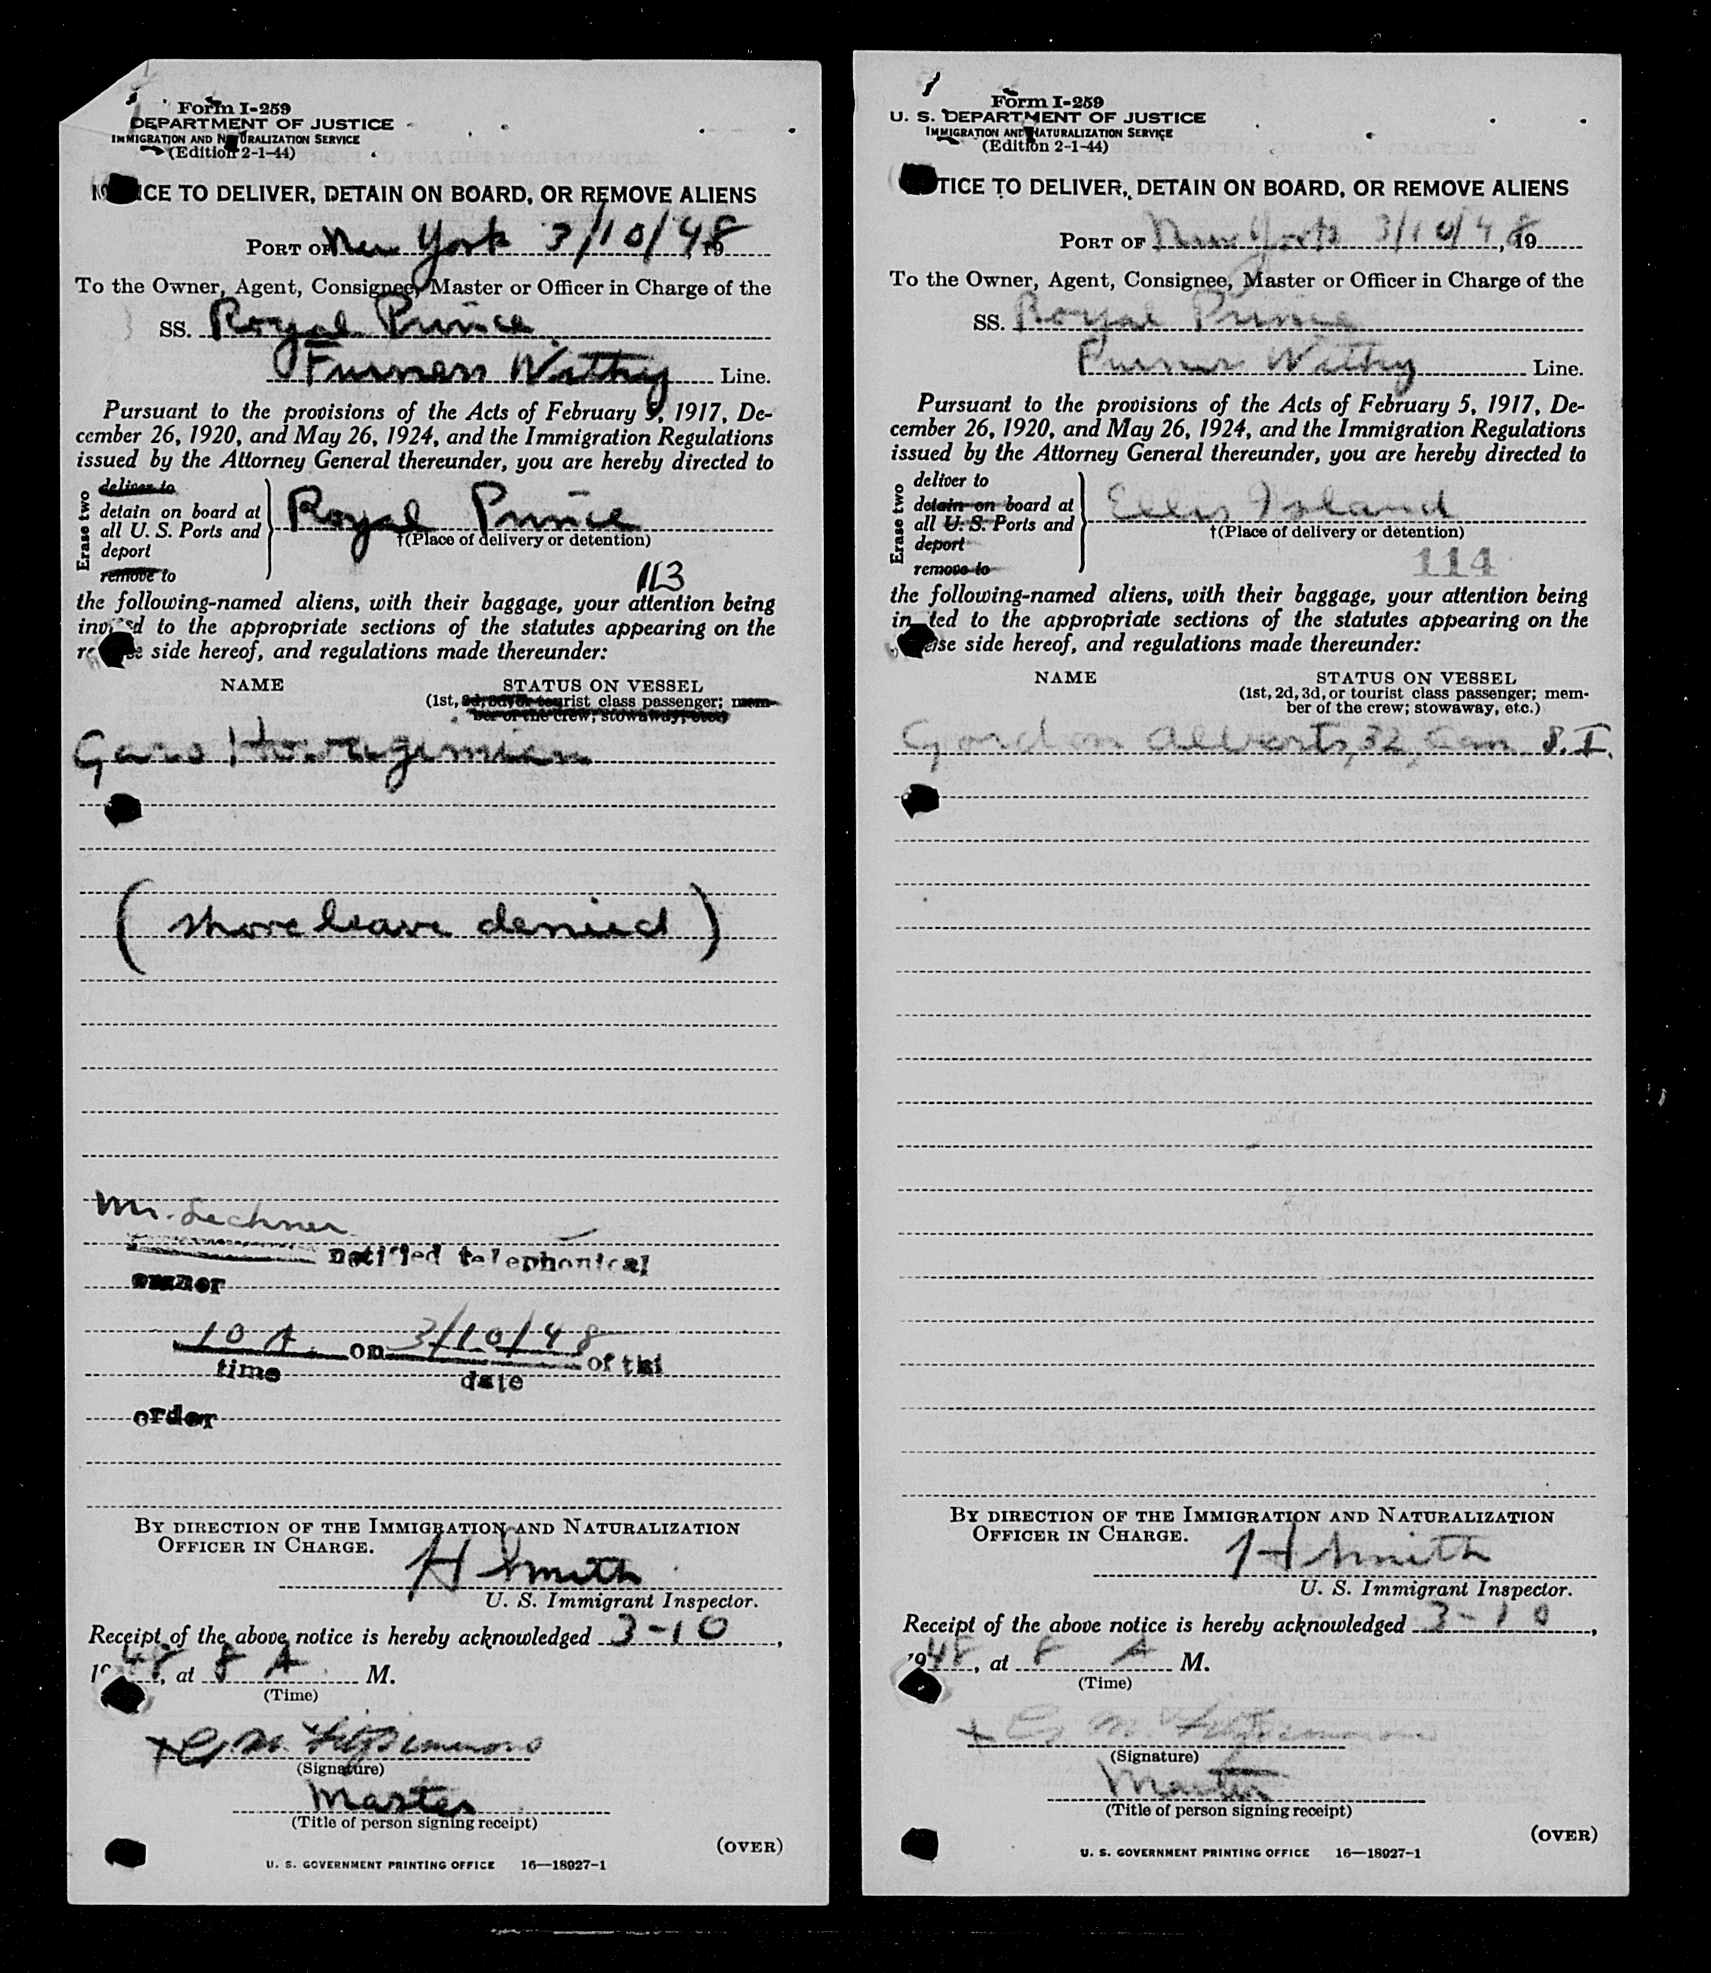 Form I-259
DEPARTMENT OF JUSTICE
IMMIGRATION AND NATURALIZATION SERVICE
(Edition 2-1-44)
NOTICE TO DELIVER, DETAIN ON BOARD, OR REMOVE ALIENS
PORT OF New York 3/10/48, 19
To the Owner, Agent, Consignee, Master or Officer in Charge of the
SS. Royal Prince
Furness Withy Line.
Pursuant to the provisions of the Acts of February 5, 1917, De-
cember 26, 1920, and May 26, 1924, and the Immigration Regulations
issued by the Attorney General thereunder, you are hereby directed to
Erase two
deliver to
detain on board at
all U. S. Ports and
deport
remove to
Royal Prince
†(Place of delivery or detention)
113
the following-named aliens, with their baggage, your attention being
invited to the appropriate sections of the statutes appearing on the
reverse side hereof, and regulations made thereunder:
NAME STATUS ON VESSEL
(1st, 2d, 3d, or tourist class passenger; mem-
ber of the crew; stowaway, etc.)
Garo
(shore leave denied)
Mr. Lechner
notified telephonical
owner
10 A. on 3/10/48 of thi
time date
order
BY DIRECTION OF THE IMMIGRATION AND NATURALIZATION
OFFICER IN CHARGE.
H Smith
U. S. Immigrant Inspector.
Receipt of the above notice is hereby acknowledged 3-10,
1948, at 8 A M.
(Time)
x G. M. Fitzsimmons
(Signature)
Master
(Title of person signing receipt)
(OVER)
U. S. GOVERNMENT PRINTING OFFICE 16—18927-1
Form I-259
U. S. DEPARTMENT OF JUSTICE
IMMIGRATION AND NATURALIZATION SERVICE
(Edition 2-1-44)
NOTICE TO DELIVER, DETAIN ON BOARD, OR REMOVE ALIENS
PORT OF New York 3/10/48, 19
To the Owner, Agent, Consignee, Master or Officer in Charge of the
SS. Royal Prince
Furness Withy Line.
Pursuant to the provisions of the Acts of February 5, 1917, De-
cember 26, 1920, and May 26, 1924, and the Immigration Regulations
issued by the Attorney General thereunder, you are hereby directed to
Erase two
deliver to
detain on board at
all U. S. Ports and
deport
remove to
Ellis Island
†(Place of delivery or detention)
114
the following-named aliens, with their baggage, your attention being
invited to the appropriate sections of the statutes appearing on the
reverse side hereof, and regulations made thereunder:
NAME STATUS ON VESSEL
(1st, 2d, 3d, or tourist class passenger; mem-
ber of the crew; stowaway, etc.)
Gordon Alberts, 32, Can S. I.
BY DIRECTION OF THE IMMIGRATION AND NATURALIZATION
OFFICER IN CHARGE.
H Smith
U. S. Immigrant Inspector.
Receipt of the above notice is hereby acknowledged 3-10,
1948, at 8 A M.
(Time)
x G. M. Fitzsimmons
(Signature)
Master
(Title of person signing receipt)
(OVER)
U. S. GOVERNMENT PRINTING OFFICE 16—18927-1